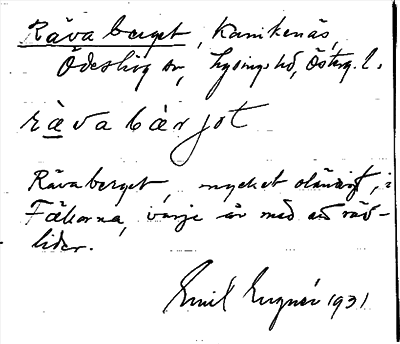 Rävaberget, Kanikenäs,
Ödeshög sn, Lysings hd, Österg. l.
rävabärjet
Rävaberget, mycket olänngt, i
Fäkorna, varje år med en räv-
lider.
Emil Lugner 1931